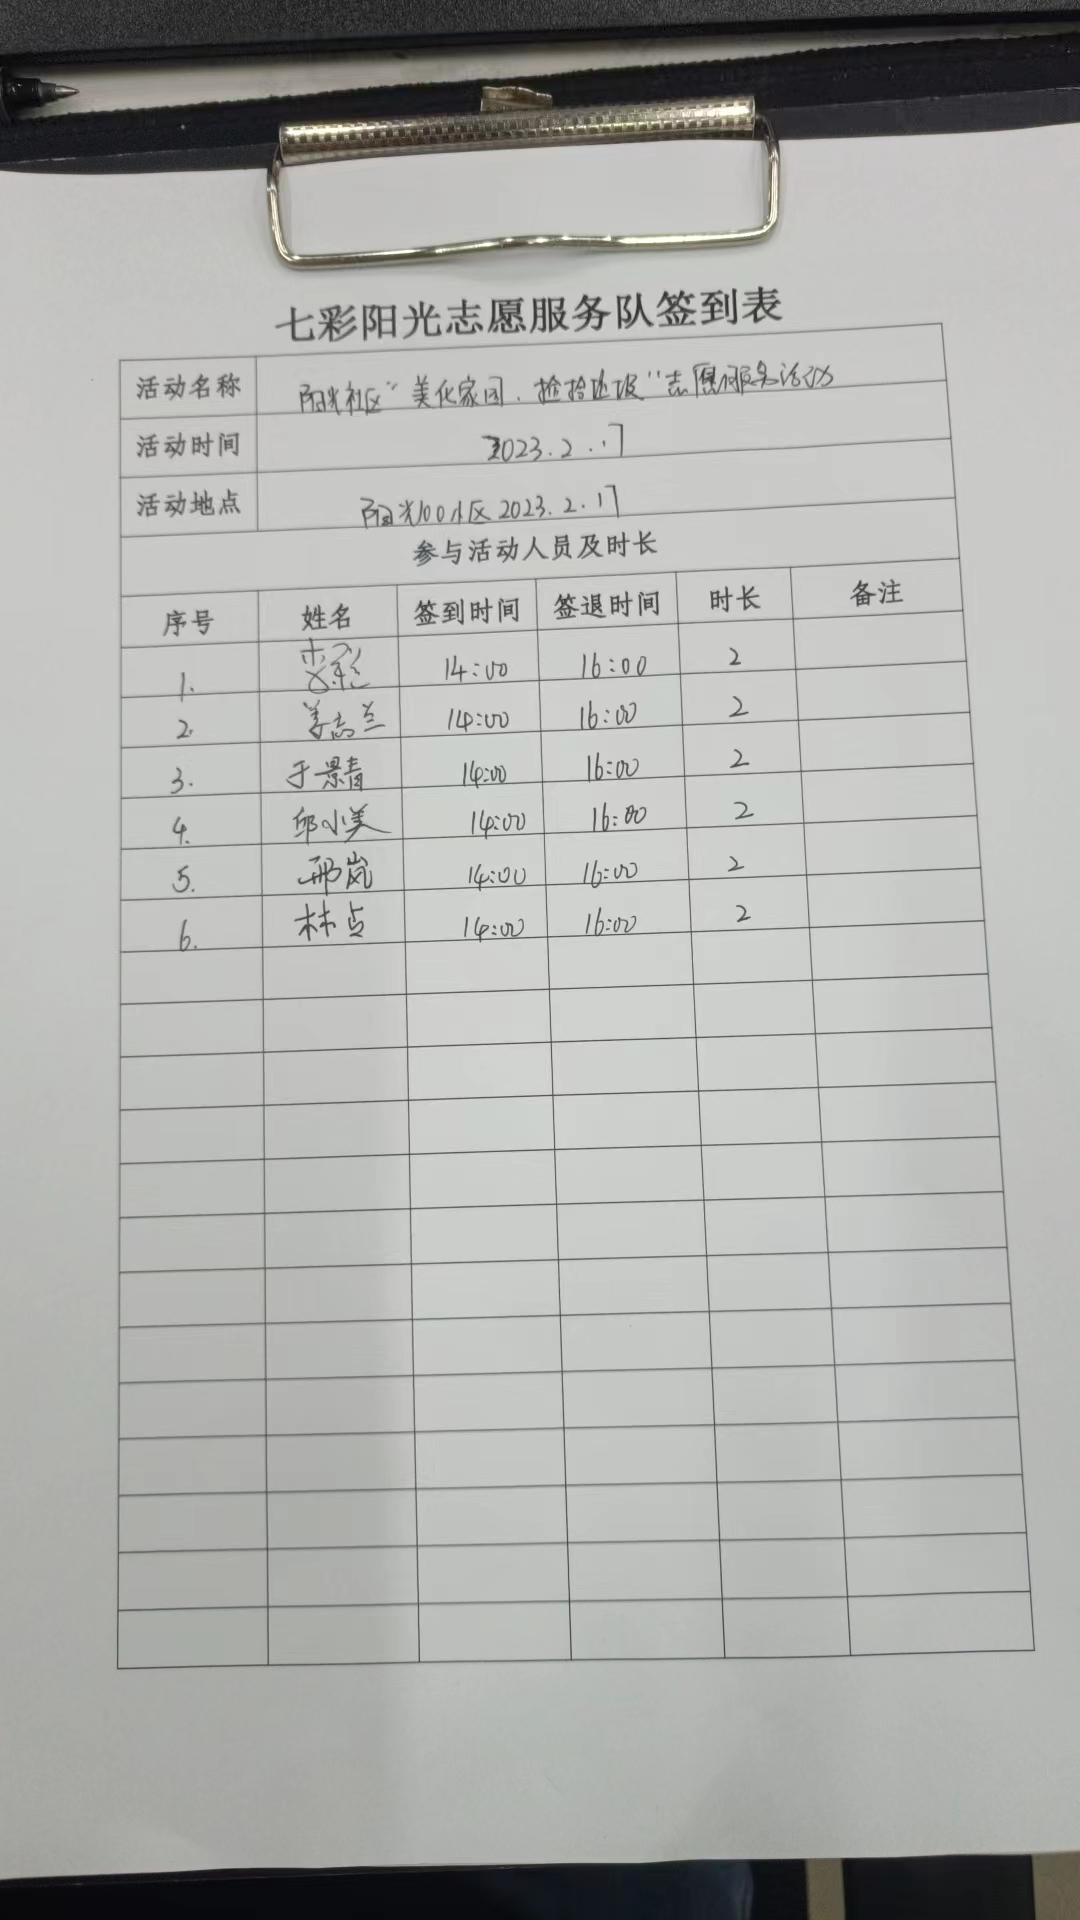 七彩阳光志愿服务队签到表
活动名称 阳光社区“美化家园、捡拾垃圾”志愿服务活动
活动时间 2023.2.17
活动地点 阳光100小区 2023.2.17
参与活动人员及时长
序号 姓名 签到时间 签退时间 时长 备注
1. 14:00 16:00 2
2. 姜志兰 14:00 16:00 2
3. 于景青 14:00 16:00 2
4. 邱小美 14:00 16:00 2
5. 邢岚 14:00 16:00 2
6. 林贞 14:00 16:00 2